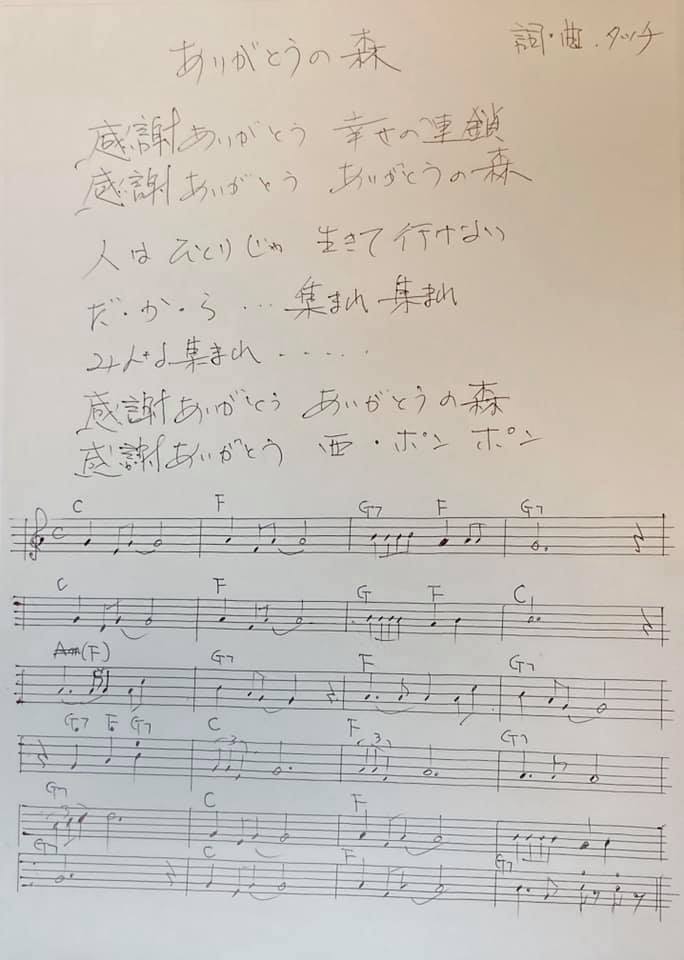 ありがとうの森
詞・曲.タッチ
感謝ありがとう 幸せの連鎖
感謝ありがとう ありがとうの森
人は ひとりじゃ 生きて行けない
だ・か・ら ... 集まれ 集まれ
みんな集まれ ・・・・・
感謝ありがとう ありがとうの森
感謝ありがとう 西・ポン ポン
C F G7 F G7
C F G F C
Am(F) G7 F G7
G7 F G7 C 3 F 3 G7
G7 3 C F
G7 C F G7